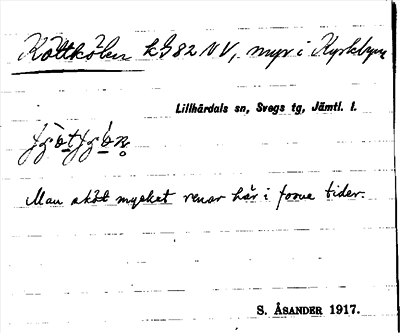 Köttkölen kG82 NV, myr i Kyrkbyn
Lillhärdals sn, Svegs tg, Jämtl. l.
Man sköt mycket renar här i forna tider.
S. ÅSANDER 1917.